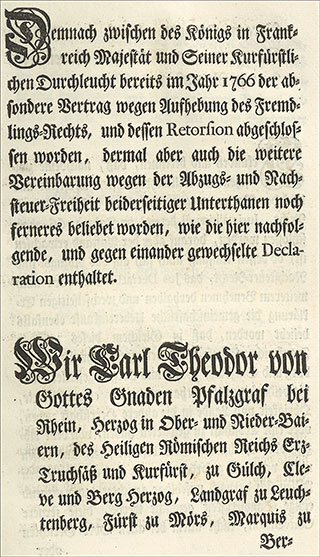 Demnach zwischen des Königs in Frank-
reich Majestät und Seiner Kurfürstli-
chen Durchleucht bereits im Jahr 1766 der ab-
sondere Vertrag wegen Aufhebung des Fremd-
lings-Rechts, und dessen Retorsion abgeschlos-
sen worden, dermal aber auch die weitere
Vereinbarung wegen der Abzugs- und Nach-
steuer-Freiheit beiderseitiger Unterthanen noch
ferneres beliebet worden, wie die hier nachfol-
gende, und gegen einander gewechselte Decla-
ration enthaltet.
Wir Carl Theodor von
Gottes Gnaden Pfalzgraf bei
Rhein, Herzog in Ober- und Nieder-Bai-
ern, des Heiligen Römischen Reichs Erz-
Truchsäß und Kurfürst, zu Gülch, Cle-
ve und Berg Herzog, Landgraf zu Leuch-
tenberg, Fürst zu Mörs, Marquis zu
Ber-